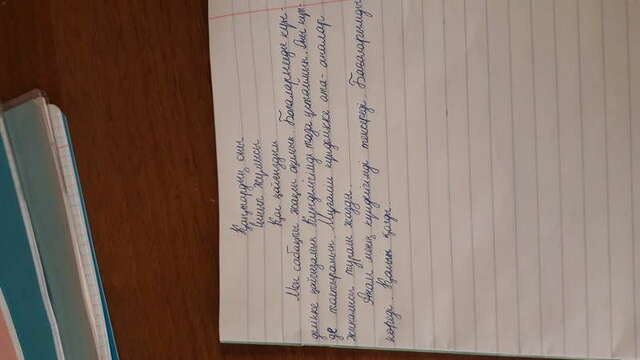 Қаңтардың оны
Сынып жұмысы
Қос қойғыздым
Мен сабақты жақсы оқимын. Бағаларымды күн-
делікке қойғызамын. Күнделігімді таза ұстаймын. Оны күн-
де толтырамын. Мұғалім күнделікке ата-аналар
жиналысы туралы жазды.
Анам менің күнделігімді тексереді. Бағаларымды
көреді. Қолын қояды.